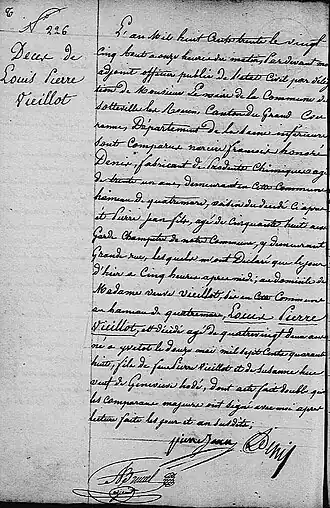 N° 226
Deces de
Louis Pierre
Vieillot
L'an mil huit Cent trente le vingt
Cinq Aout a onze heures du matin, Pardevant moi
adjoint officier public de l'etat Civil par déléga
tion de Monsieur Le maire de la Commune de
Sotteville les Rouen, Canton du Grand Cou
ronne, Département de la Seine inférieure
sont Comparus narcisse francois honoré
Denis, fabricant de Produits Chimiques agé
de trente un ans, demeurant en Cette Commune
hameau de quatremare, voisin du décédé Ci après
et Pierre Jean fils, agé de Cinquante huit ans
Garde Champêtre de notre Commune, y demeurant
Grande rue, lesquels m'ont Déclaré que le jour
d'hier a Cinq heures apres midi, au domicile de
Madame veuve Vieillot, sis en Cette Commune
en hameau de quatremare, Louis Pierre
Vieillot, est décédé agé de quatrevingt deux ans
né a yvetot le douze mai mil sept Cent quarante
huit, fils de feu Pierre Vieillot et de Susanne
veuf de Genevieve hedé, dont acte fait double que
les Comparans majeurs ont signé avec moi apres
lecture faite les jour et an susdits.
pierre Jean Denis